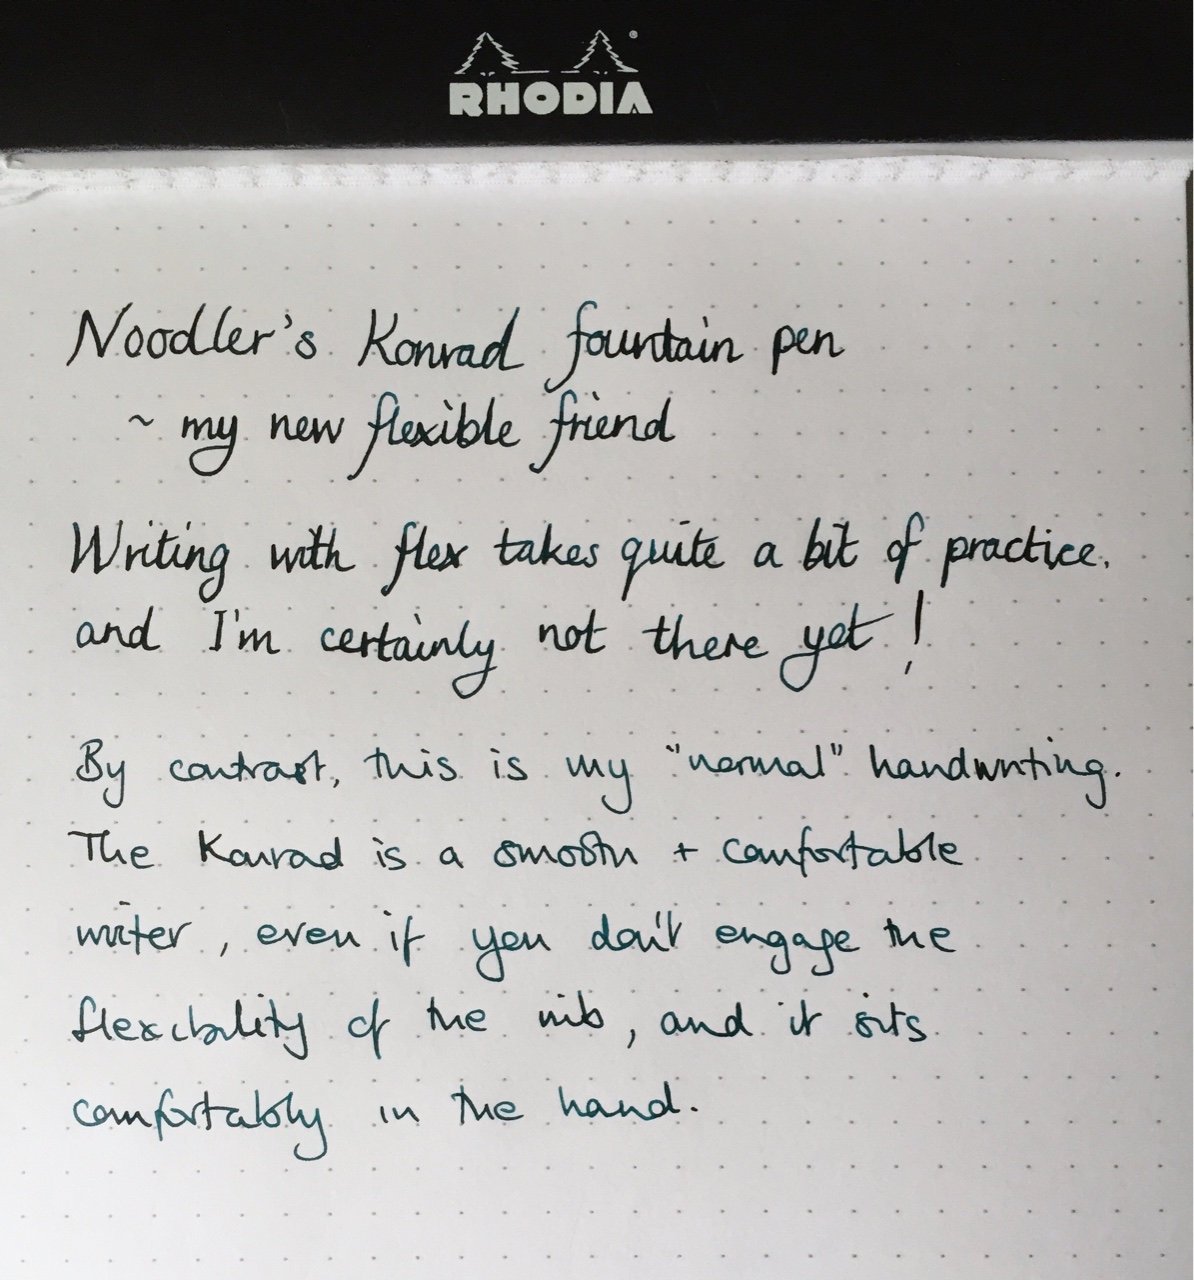 RHODIA
Noodler's Konrad fountain pen
~ my new flexible friend
Writing with flex takes quite a bit of practice,
and I'm certainly not there yet!
By contrast, this is my "normal" handwriting.
The Konrad is a smooth + comfortable
writer, even if you don't engage the
flexibility of the nib, and it sits
comfortably in the hand.